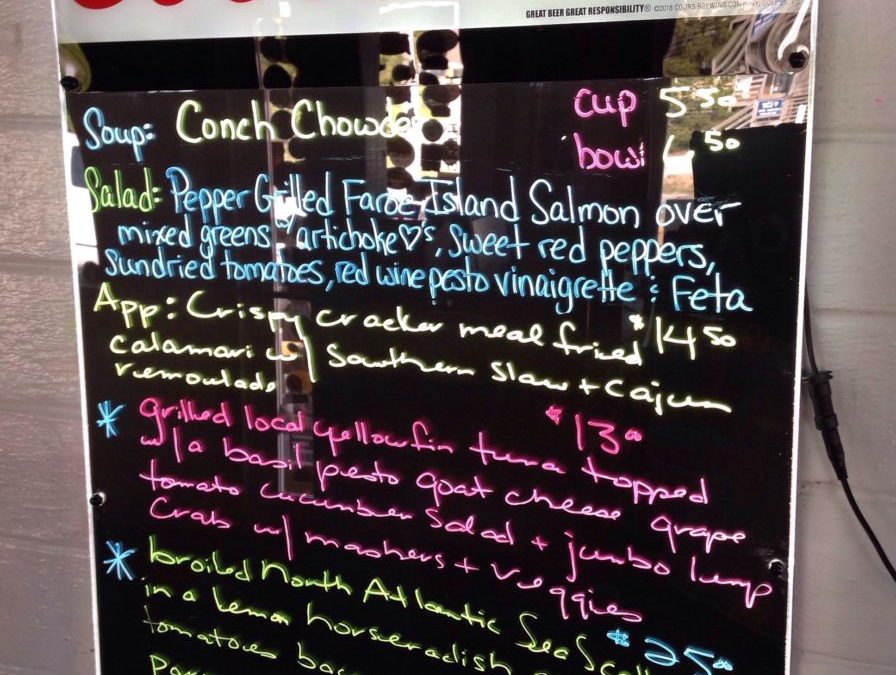 GREAT BEER GREAT RESPONSIBILITY® ©2018 COORS BREWING COMPANY
Soup: Conch Chowder cup 5 50
bowl 6 50
Salad: Pepper Grilled Faroe Island Salmon over
mixed greens w/ artichoke ♡'s, sweet red peppers,
sundried tomatoes, red wine pesto vinaigrette & Feta
$14 50
App: Crispy cracker meal fried
calamari w/ Southern slaw + Cajun
remoulade
$13 00
* grilled local yellowfin tuna topped
w/ a basil pesto goat cheese grape
tomato cucumber salad + jumbo lump
crab w/ mashers + veggies
$25 00
* broiled North Atlantic Sea
in a lemon horseradish
tomatoes